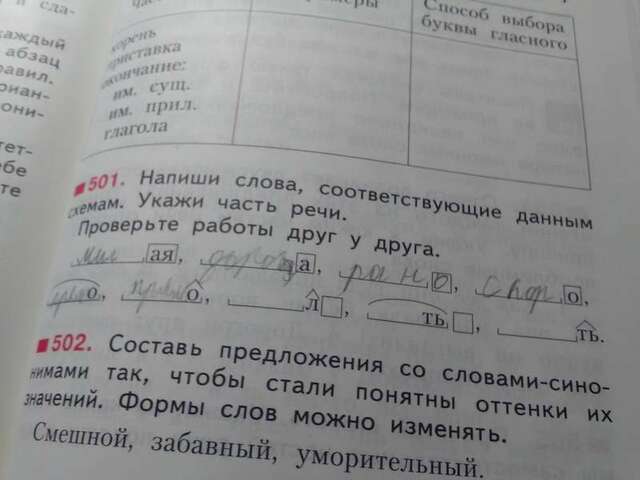 и сда-
каждый
абзац
равил.
риан-
они-
тет-
ебе
те
Способ выбора
буквы гласного
корень
приставка
окончание:
им. сущ.
им. прил.
глагола
501. Напиши слова, соответствующие данным
схемам. Укажи часть речи.
Проверьте работы друг у друга.
мил ая, а, рано, скор о,
о, о, л, ть, ть.
502. Составь предложения со словами-сино-
нимами так, чтобы стали понятны оттенки их
значений. Формы слов можно изменять.
Смешной, забавный, уморительный.